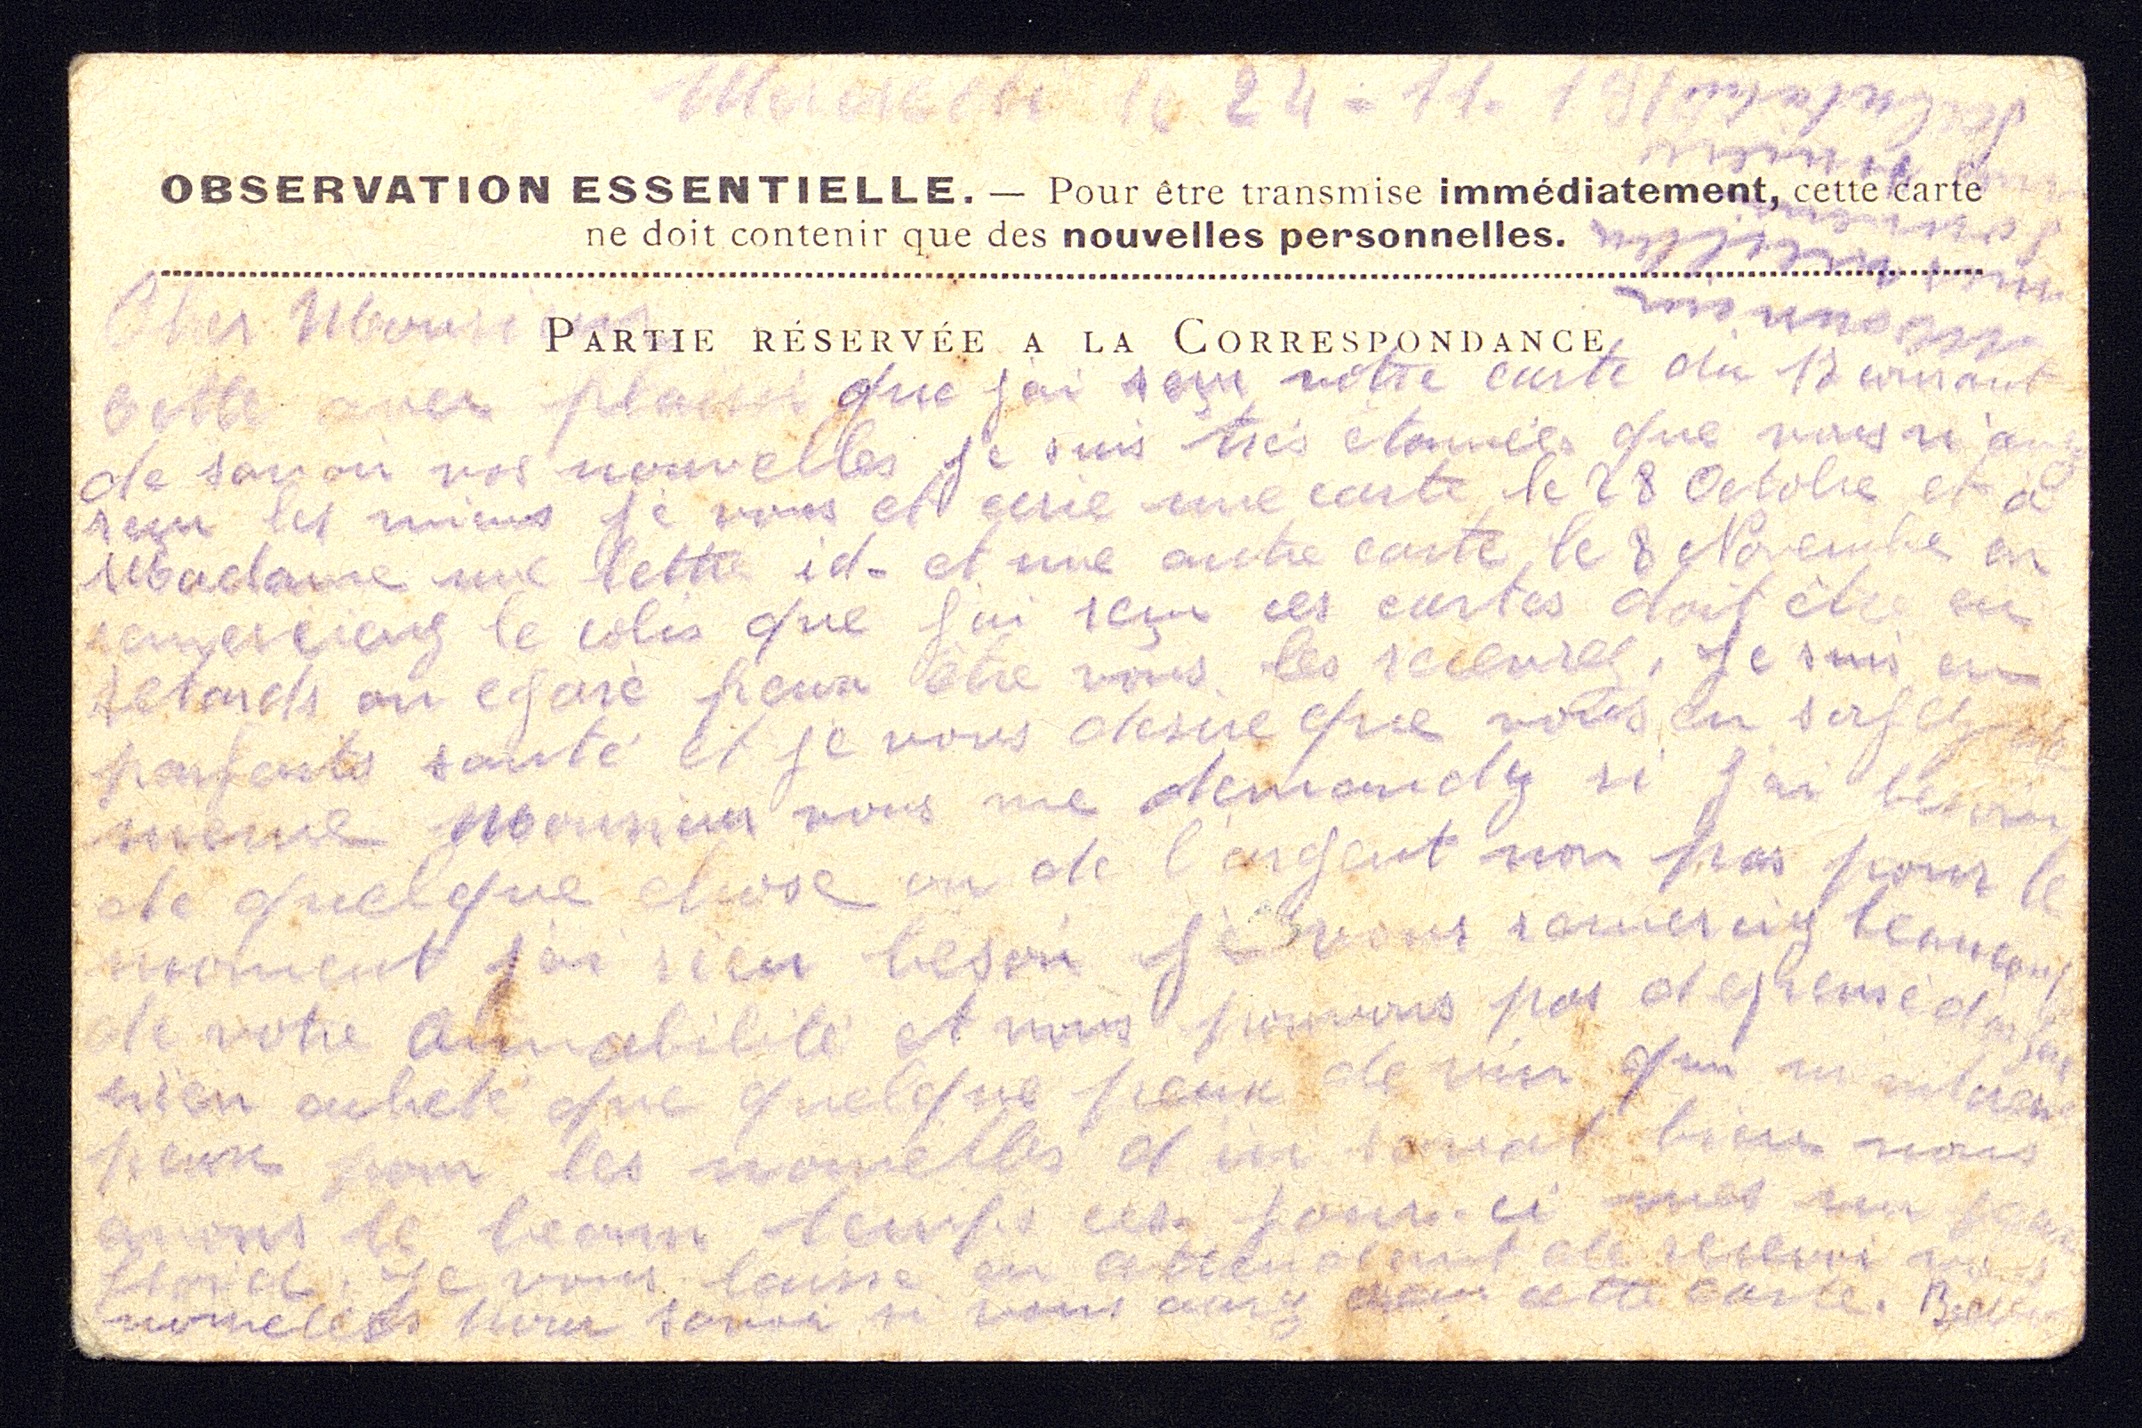 le 24-11-191
OBSERVATION ESSENTIELLE. — Pour être transmise immédiatement, cette carte
ne doit contenir que des nouvelles personnelles.
Cher Monsieur
PARTIE RÉSERVÉE A LA CORRESPONDANCE
Cette avec plaisir que j'ai reçu votre carte du 12 courant
de savoir vos nouvelles je suis très étonnée que vous n'aug
reçu les miens je vous et écrie une carte le 28 Octobre et à
Madame une lettre id- et une autre carte le 8 Novembre en
remercieng le colis que j'ai reçu ces cartes doit être en
retards ou egaré peux être vous les recevreg, je suis en
parfaits santé et je vous desire que vous en soyez de
meme Monsieur vous me demandez si j'ai besoin
de quelque chose ou de l'argent non pas pour le
moment j'ai rien besoin je vous remercieg beaucoup
de votre aimabilité et nous pouvons pas depensé d'argent
rien acheté que quelque peux de vin
peux pour les nouvelles d'ici bien nous
avons le beau temps ces jour-ci mes un peux
froid. Je vous laisse en attendant de recevoi vos
nouvelles pour savoir si vous aurez reçu cette carte.
Monsieur
mes meilleur